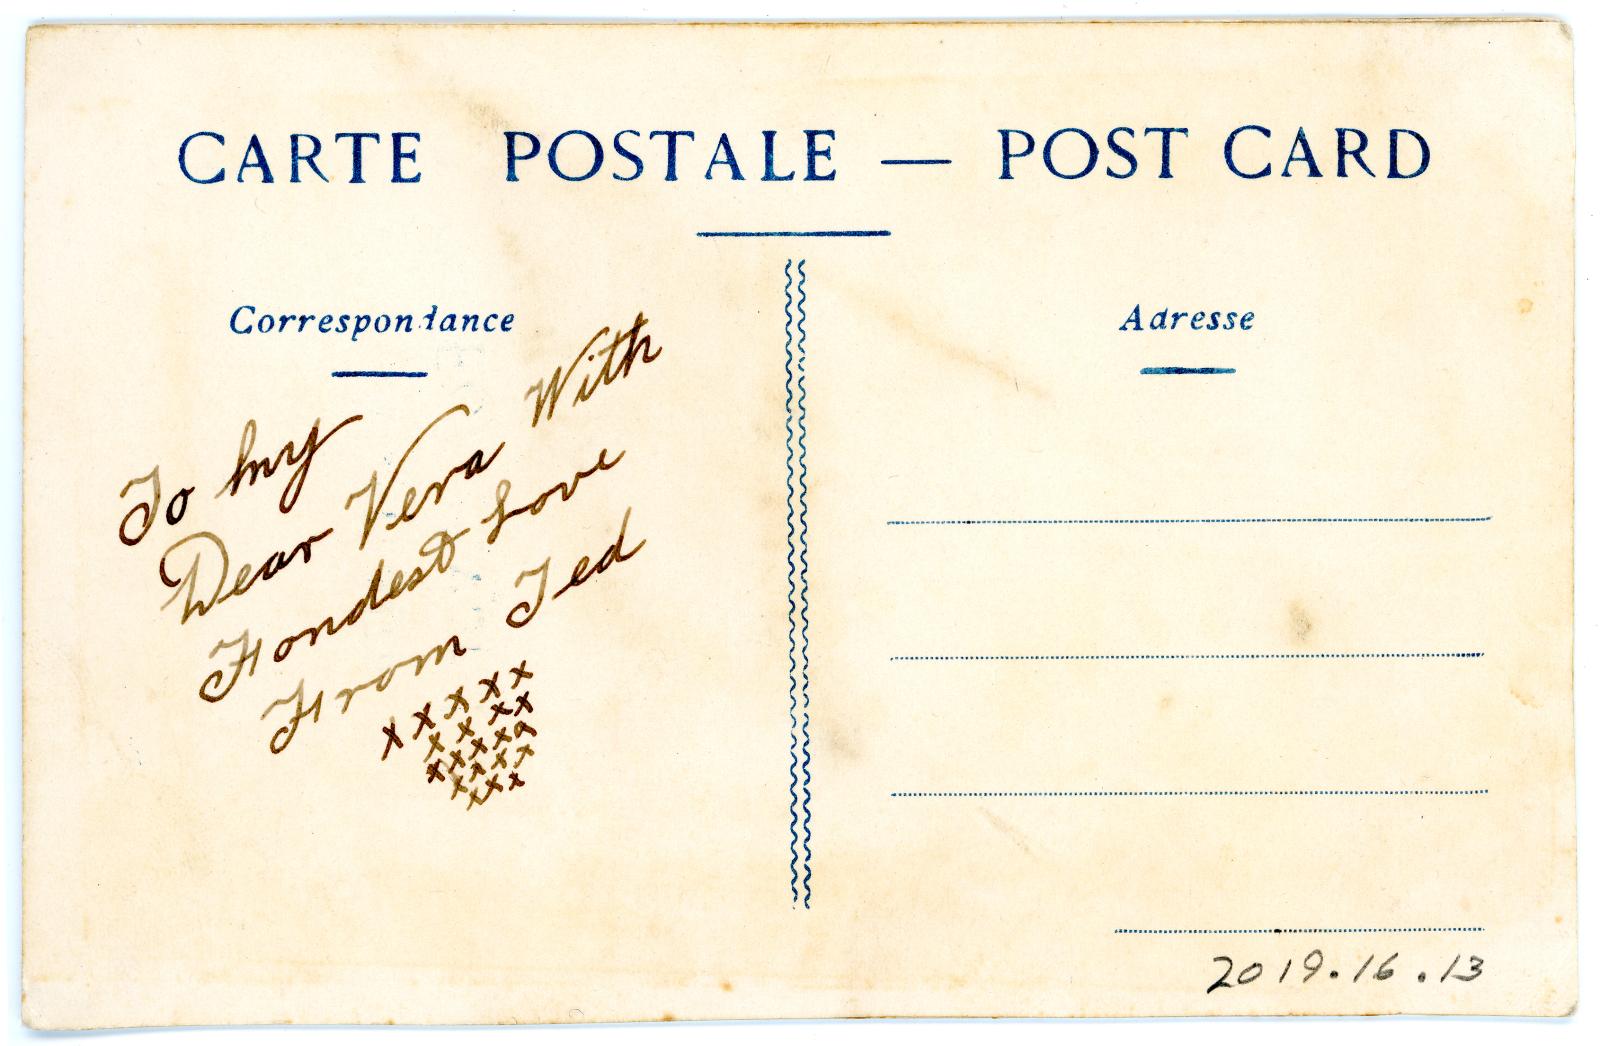 CARTE POSTALE — POST CARD
Correspondance
Adresse
To my
Dear Vera With
Fondest Love
From Ted
x x x x x
x x x x
x x x x x
x x x x
x x x
2019.16.13